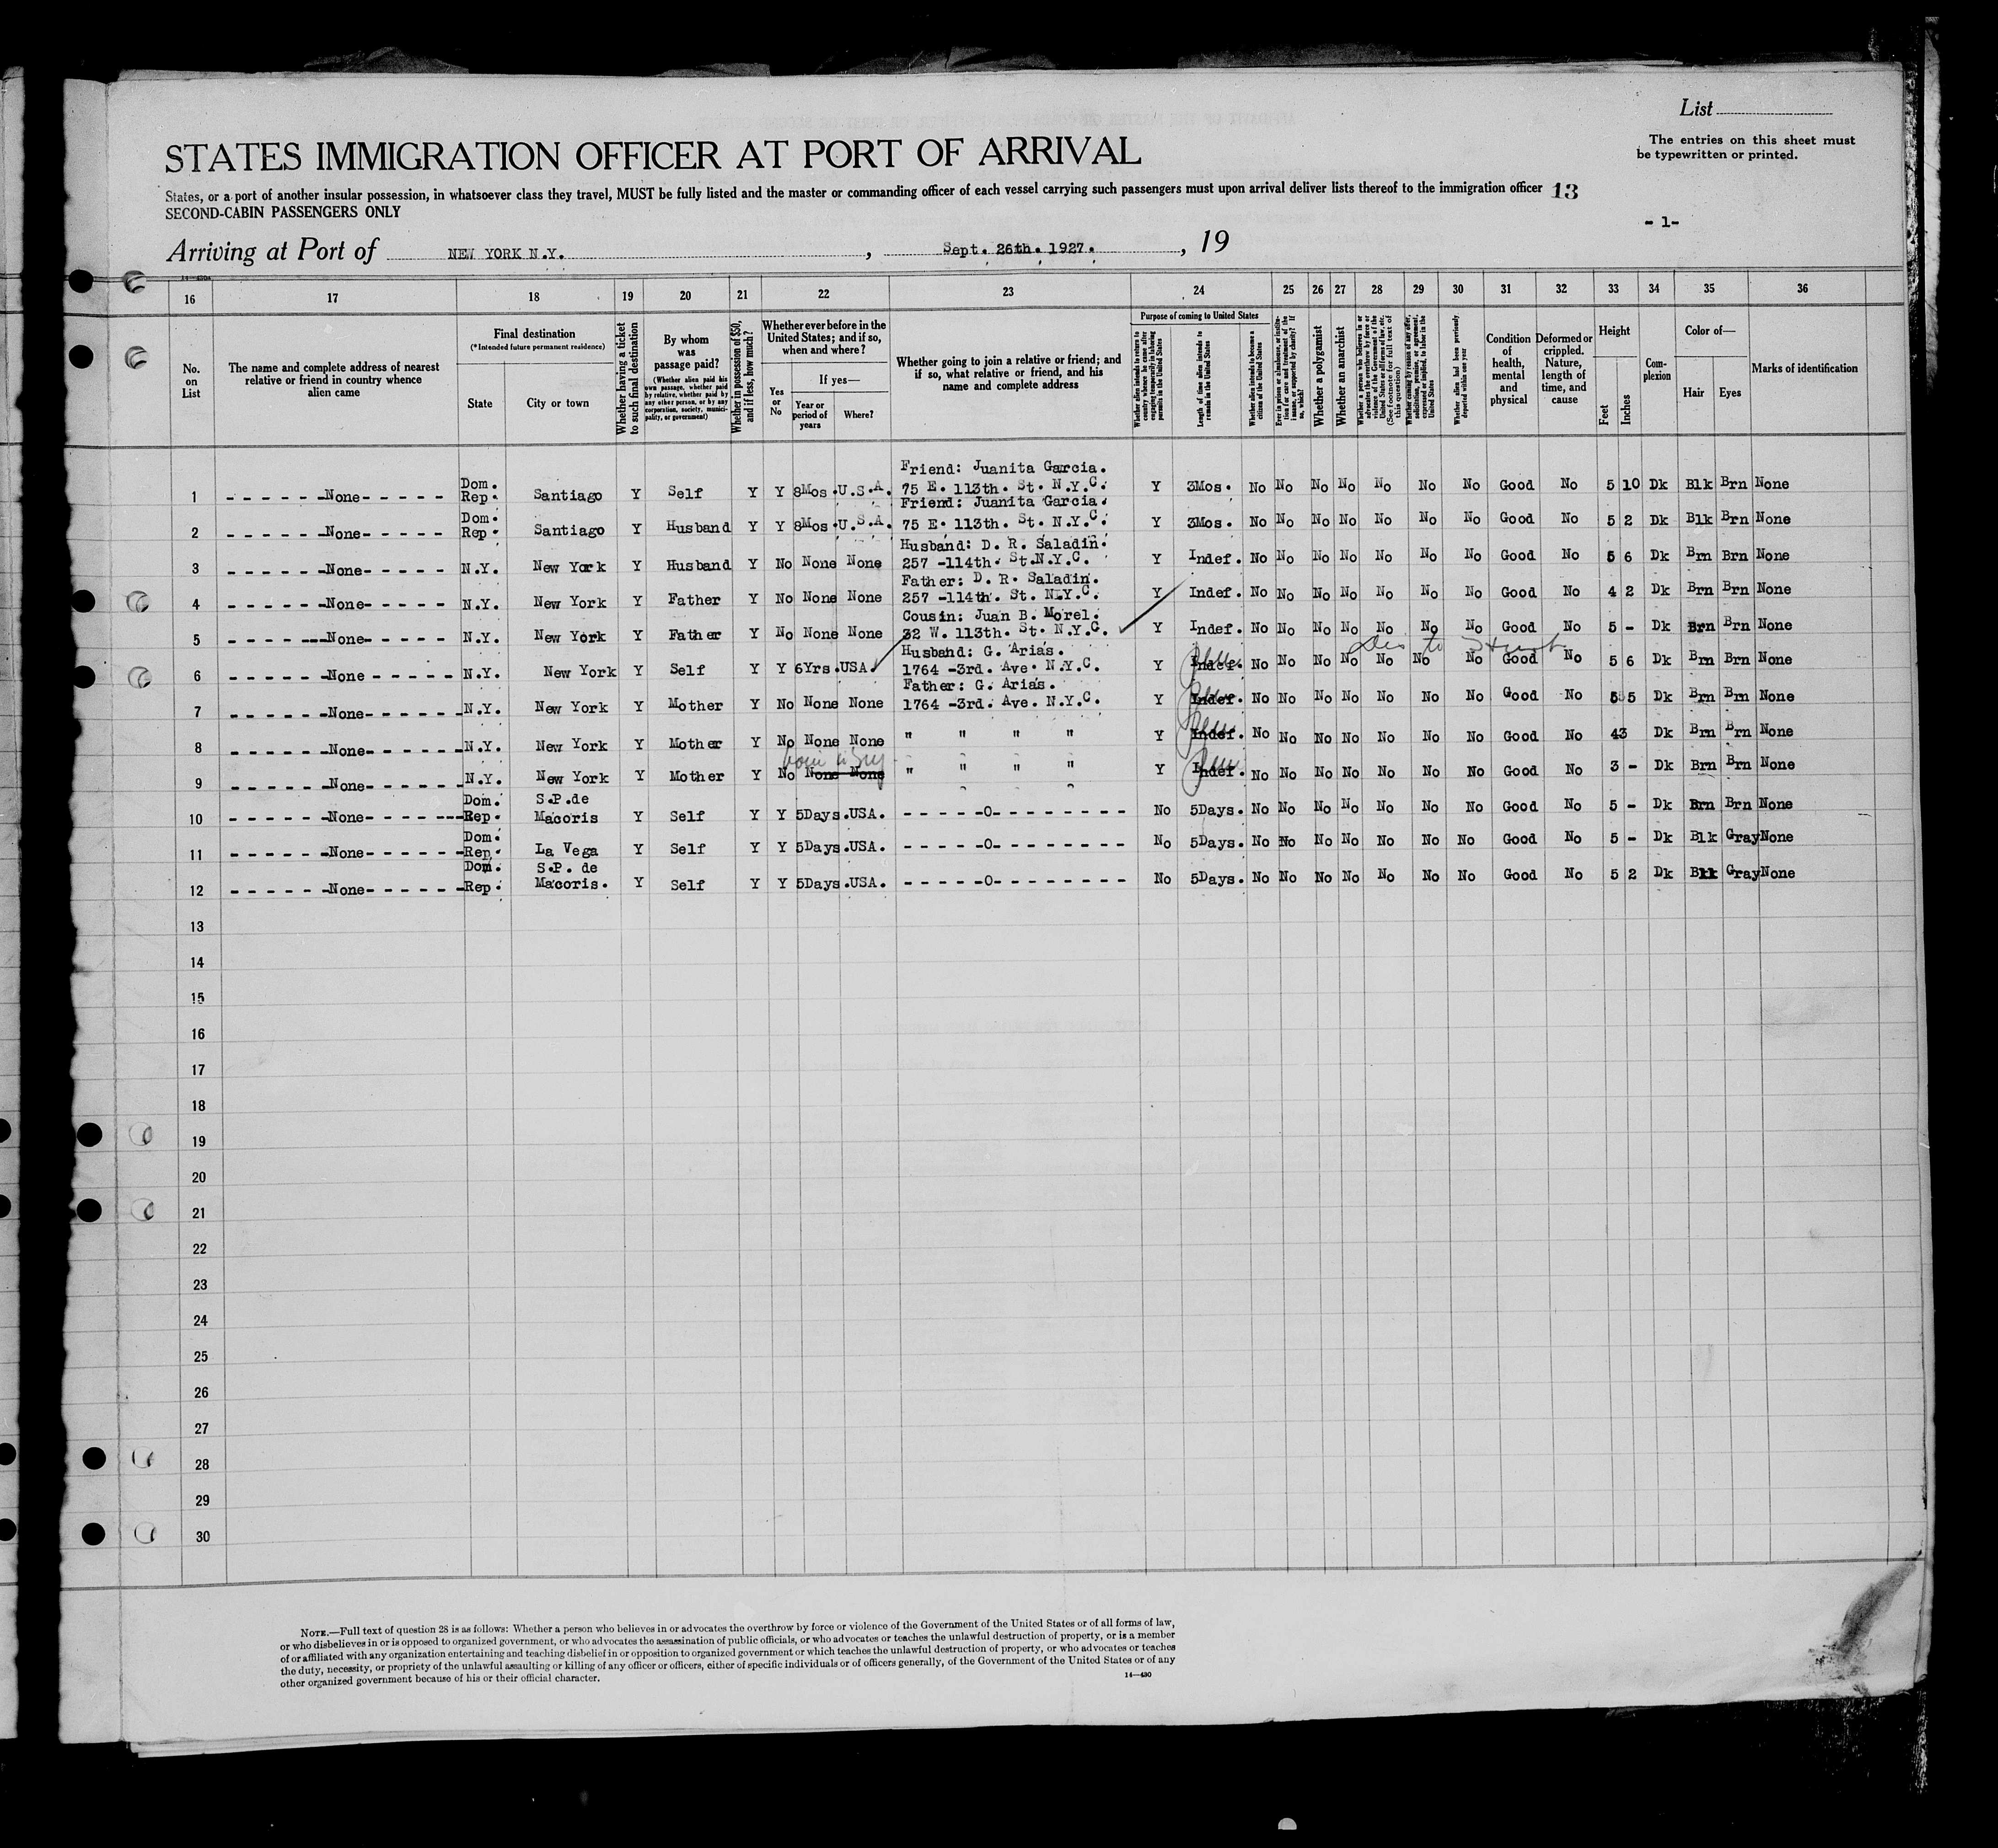 List
The entries on this sheet must
be typewritten or printed.
STATES IMMIGRATION OFFICER AT PORT OF ARRIVAL
States, or a port of another insular possession, in whatsoever class they travel, MUST be fully listed and the master or commanding officer of each vessel carrying such passengers must upon arrival deliver lists thereof to the immigration officer 13
SECOND-CABIN PASSENGERS ONLY
- 1-
Arriving at Port of NEW YORK N.Y. , Sept. 26th. 1927. , 19
16 17 18 19 20 21 22 23 24 25 26 27 28 29 30 31 32 33 34 35 36
No. on List
The name and complete address of nearest relative or friend in country whence alien came
Final destination
(*Intended future permanent residence)
State
City or town
Whether having a ticket to such final destination
By whom was passage paid?
(Whether alien paid his own passage, whether paid by relative, whether paid by any other person, or by any corporation, society, municipality, or government)
Whether in possession of $50, and if less, how much?
Whether ever before in the United States; and if so, when and where?
Yes or No
If yes—
Year or period of years
Where?
Whether going to join a relative or friend; and if so, what relative or friend, and his name and complete address
Purpose of coming to United States
Whether alien intends to return to country whence he came after engaging temporarily in laboring pursuits in the United States
Length of time alien intends to remain in the United States
Whether alien intends to become a citizen of the United States
Ever in prison or almshouse, or institution for care and treatment of the insane, or supported by charity? If so, which?
Whether a polygamist
Whether an anarchist
(See footnote for full text of this question)
Whether alien had been previously deported within one year
Condition of health, mental and physical
Deformed or crippled. Nature, length of time, and cause
Height
Feet
Inches
Complexion
Color of—
Hair
Eyes
Marks of identification
1 - - - - - -None- - - - - Dom. Rep. Santiago Y Self Y Y 8Mos. U.S.A. Friend: Juanita Garcia. 75 E. 113th. St. N.Y.C. Y 3Mos. No No No No No No No Good No 5 10 Dk Blk Brn None
2 - - - - - -None- - - - - Dom. Rep. Santiago Y Husband Y Y 8Mos. U.S.A. Friend: Juanita Garcia. 75 E. 113th. St. N.Y.C. Y 3Mos. No No No No No No No Good No 5 2 Dk Blk Brn None
3 - - - - - -None- - - - - N.Y. New York Y Husband Y No None None Husband: D. R. Saladin. 257 -114th. St.N.Y.C. Y Indef. No No No No No No No Good No 5 6 Dk Brn Brn None
4 - - - - - -None- - - - - N.Y. New York Y Father Y No None None Father: D. R. Saladin. 257 -114th. St. N.Y.C. Y Indef. No No No No No No No Good No 4 2 Dk Brn Brn None
5 - - - - - -None- - - - - N.Y. New York Y Father Y No None None Cousin: Juan B. Morel. 32 W. 113th. St. N.Y.C. Y Indef. No No No No No No No Good No 5 - Dk Brn Brn None
6 - - - - - -None - - - - - N.Y. New York Y Self Y Y 6Yrs. USA. Husband: G. Arias. 1764 -3rd. Ave. N.Y.C. Y Indef. No No No No No No No Good No 5 6 Dk Brn Brn None
7 - - - - - -None- - - - - N.Y. New York Y Mother Y No None None Father: G. Arias. 1764 -3rd. Ave. N.Y.C. Y Indef. No No No No No No No Good No 5 5 Dk Brn Brn None
8 - - - - - -None- - - - - N.Y. New York Y Mother Y No None None " " " " Y Indef. No No No No No No No Good No 43 Dk Brn Brn None
9 - - - - - -None- - - - - N.Y. New York Y Mother Y No None None " " " " Y Indef. No No No No No No No Good No 3 - Dk Brn Brn None
10 - - - - - -None- - - - - Dom. Rep. S.P.de Macoris Y Self Y Y 5Days. USA. - - - - -O- - - - - - - - No 5Days. No No No No No No No Good No 5 - Dk Brn Brn None
11 - - - - - -None- - - - - Dom. Rep. La Vega Y Self Y Y 5Days. USA. - - - - -O- - - - - - - - No 5Days. No No No No No No No Good No 5 - Dk Blk Gray None
12 - - - - - -None- - - - - Dom. Rep. S.P. de Macoris. Y Self Y Y 5Days. USA. - - - - -O- - - - - - - - No 5Days. No No No No No No No Good No 5 2 Dk Blk Gray None
13
14
15
16
17
18
19
20
21
22
23
24
25
26
27
28
29
30
NOTE.—Full text of question 28 is as follows: Whether a person who believes in or advocates the overthrow by force or violence of the Government of the United States or of all forms of law,
or who disbelieves in or is opposed to organized government, or who advocates the assassination of public officials, or who advocates or teaches the unlawful destruction of property, or is a member
of or affiliated with any organization entertaining and teaching disbelief in or opposition to organized government or which teaches the unlawful destruction of property, or who advocates or teaches
the duty, necessity, or propriety of the unlawful assaulting or killing of any officer or officers, either of specific individuals or of officers generally, of the Government of the United States or of any
other organized government because of his or their official character.
14—430